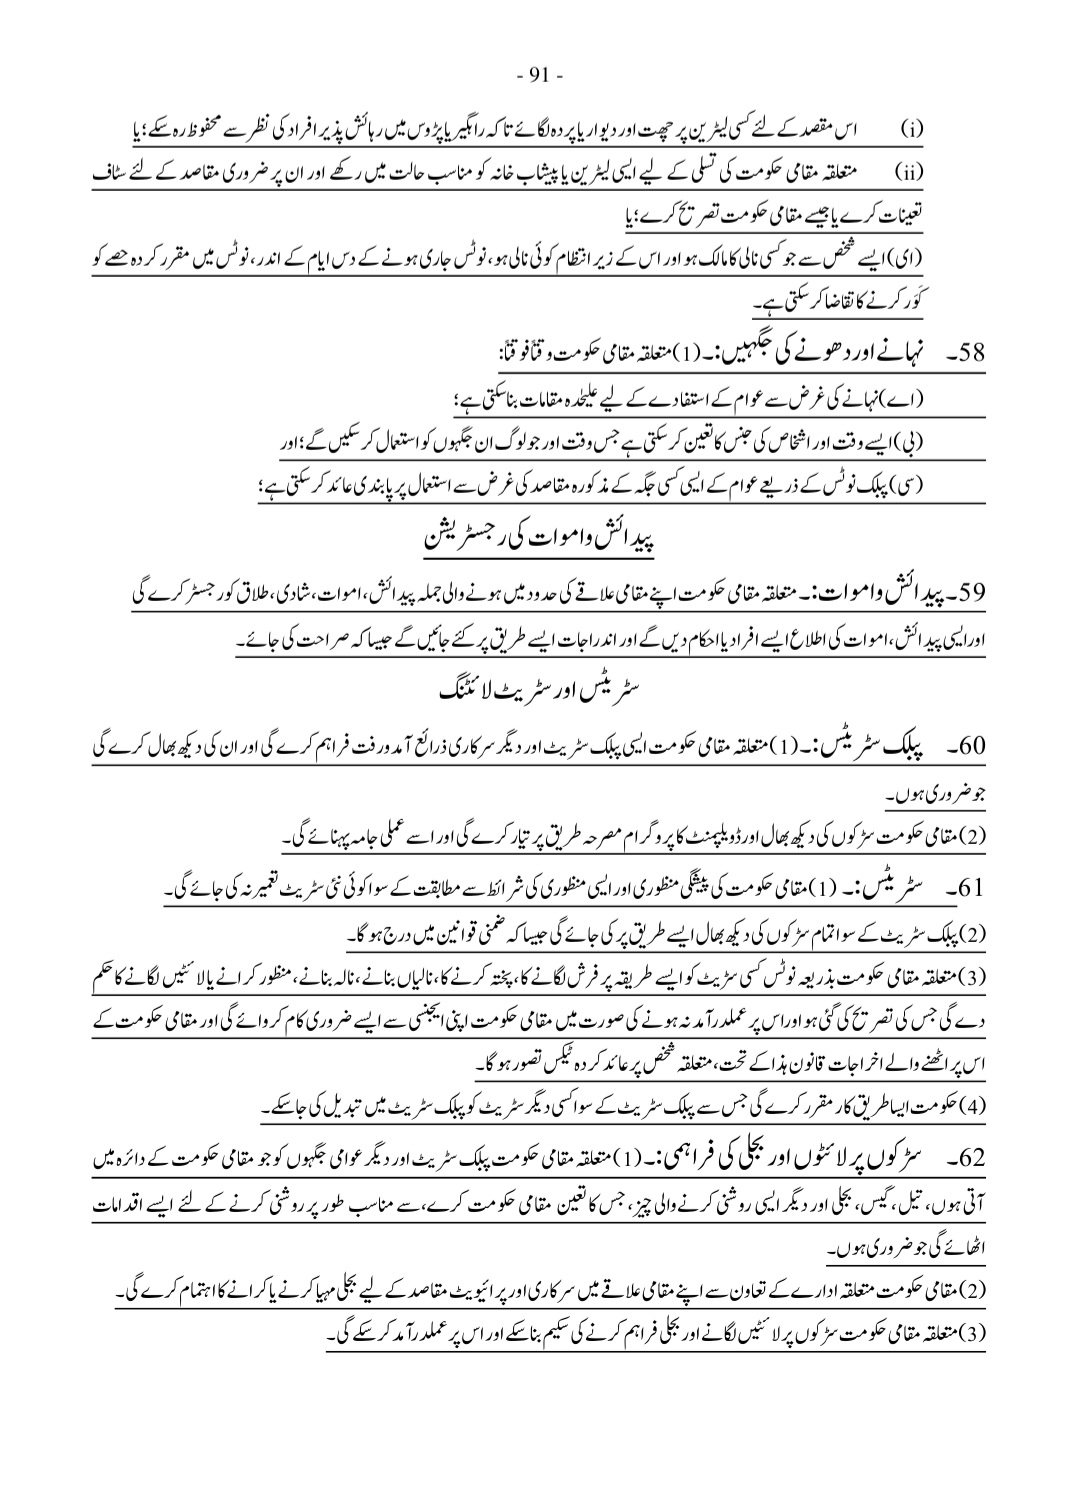 - 91 -
(i) اس مقصد کے لئے کسی لیٹرین پر چھت اور دیوار یا پردہ لگائے تاکہ راہگیر یا پڑوس میں رہائش پذیر افراد کی نظر سے محفوظ رہ سکے؛ یا
(ii) متعلقہ مقامی حکومت کی تسلی کے لیے ایسی لیٹرین یا پیشاب خانہ کو مناسب حالت میں رکھے اور ان پر ضروری مقاصد کے لئے سٹاف
تعینات کرے یا جیسے مقامی حکومت تصریح کرے؛ یا
(ای) ایسے شخص سے جو کسی نالی کا مالک ہو اور اس کے زیر انتظام کوئی نالی ہو، نوٹس جاری ہونے کے دس ایام کے اندر، نوٹس میں مقرر کردہ حصے کو
کَوَر کرنے کا تقاضا کر سکتی ہے۔
58۔ نہانے اور دھونے کی جگہیں:۔ (1) متعلقہ مقامی حکومت وقتاً فوقتاً:
(اے) نہانے کی غرض سے عوام کے استفادے کے لیے علیحٰدہ مقامات بنا سکتی ہے؛
(بی) ایسے وقت اور اشخاص کی جنس کا تعین کر سکتی ہے جس وقت اور جو لوگ ان جگہوں کو استعمال کر سکیں گے؛ اور
(سی) پبلک نوٹس کے ذریعے عوام کے ایسی کسی جگہ کے مذکورہ مقاصد کی غرض سے استعمال پر پابندی عائد کر سکتی ہے؛
پیدائش و اموات کی رجسٹریشن
59۔ پیدائش و اموات:۔ متعلقہ مقامی حکومت اپنے مقامی علاقے کی حدود میں ہونے والی جملہ پیدائش، اموات، شادی، طلاق کو رجسٹر کرے گی
اور ایسی پیدائش، اموات کی اطلاع ایسے افراد یا احکام دیں گے اور اندراجات ایسے طریق پر کئے جائیں گے جیسا کہ صراحت کی جائے۔
سٹریٹس اور سٹریٹ لائٹنگ
60۔ پبلک سٹریٹس:۔ (1) متعلقہ مقامی حکومت ایسی پبلک سٹریٹ اور دیگر سرکاری ذرائع آمدورفت فراہم کرے گی اور ان کی دیکھ بھال کرے گی
جو ضروری ہوں۔
(2) مقامی حکومت سڑکوں کی دیکھ بھال اور ڈویلپمنٹ کا پروگرام مصرحہ طریق پر تیار کرے گی اور اسے عملی جامہ پہنائے گی۔
61۔ سٹریٹس:۔ (1) مقامی حکومت کی پیشگی منظوری اور ایسی منظوری کی شرائط سے مطابقت کے سوا کوئی نئی سٹریٹ تعمیر نہ کی جائے گی۔
(2) پبلک سٹریٹ کے سوا تمام سڑکوں کی دیکھ بھال ایسے طریق پر کی جائے گی جیسا کہ ضمنی قوانین میں درج ہو گا۔
(3) متعلقہ مقامی حکومت بذریعہ نوٹس کسی سڑیٹ کو ایسے طریقہ پر فرش لگانے کا، پختہ کرنے کا، نالیاں بنانے، نالہ بنانے، منظور کرانے یا لائٹیں لگانے کا حکم
دے گی جس کی تصریح کی گئی ہو اور اس پر عملدرآمد نہ ہونے کی صورت میں مقامی حکومت اپنی ایجنسی سے ایسے ضروری کام کروائے گی اور مقامی حکومت کے
اس پر اٹھنے والے اخراجات قانون ہذا کے تحت، متعلقہ شخص پر عائد کردہ ٹیکس تصور ہو گا۔
(4) حکومت ایسا طریق کار مقرر کرے گی جس سے پبلک سٹریٹ کے سوا کسی دیگر سٹریٹ کو پبلک سٹریٹ میں تبدیل کی جا سکے۔
62۔ سڑکوں پر لائٹوں اور بجلی کی فراہمی:۔ (1) متعلقہ مقامی حکومت پبلک سٹریٹ اور دیگر عوامی جگہوں کو جو مقامی حکومت کے دائرہ میں
آتی ہوں، تیل، گیس، بجلی اور دیگر ایسی روشنی کرنے والی چیز، جس کا تعین مقامی حکومت کرے، سے مناسب طور پر روشنی کرنے کے لئے ایسے اقدامات
اٹھائے گی جو ضروری ہوں۔
(2) مقامی حکومت متعلقہ ادارے کے تعاون سے اپنے مقامی علاقے میں سرکاری اور پرائیویٹ مقاصد کے لیے بجلی مہیا کرنے یا کرانے کا اہتمام کرے گی۔
(3) متعلقہ مقامی حکومت سڑکوں پر لائٹیں لگانے اور بجلی فراہم کرنے کی سکیم بنا سکے اور اس پر عملدرآمد کر سکے گی۔